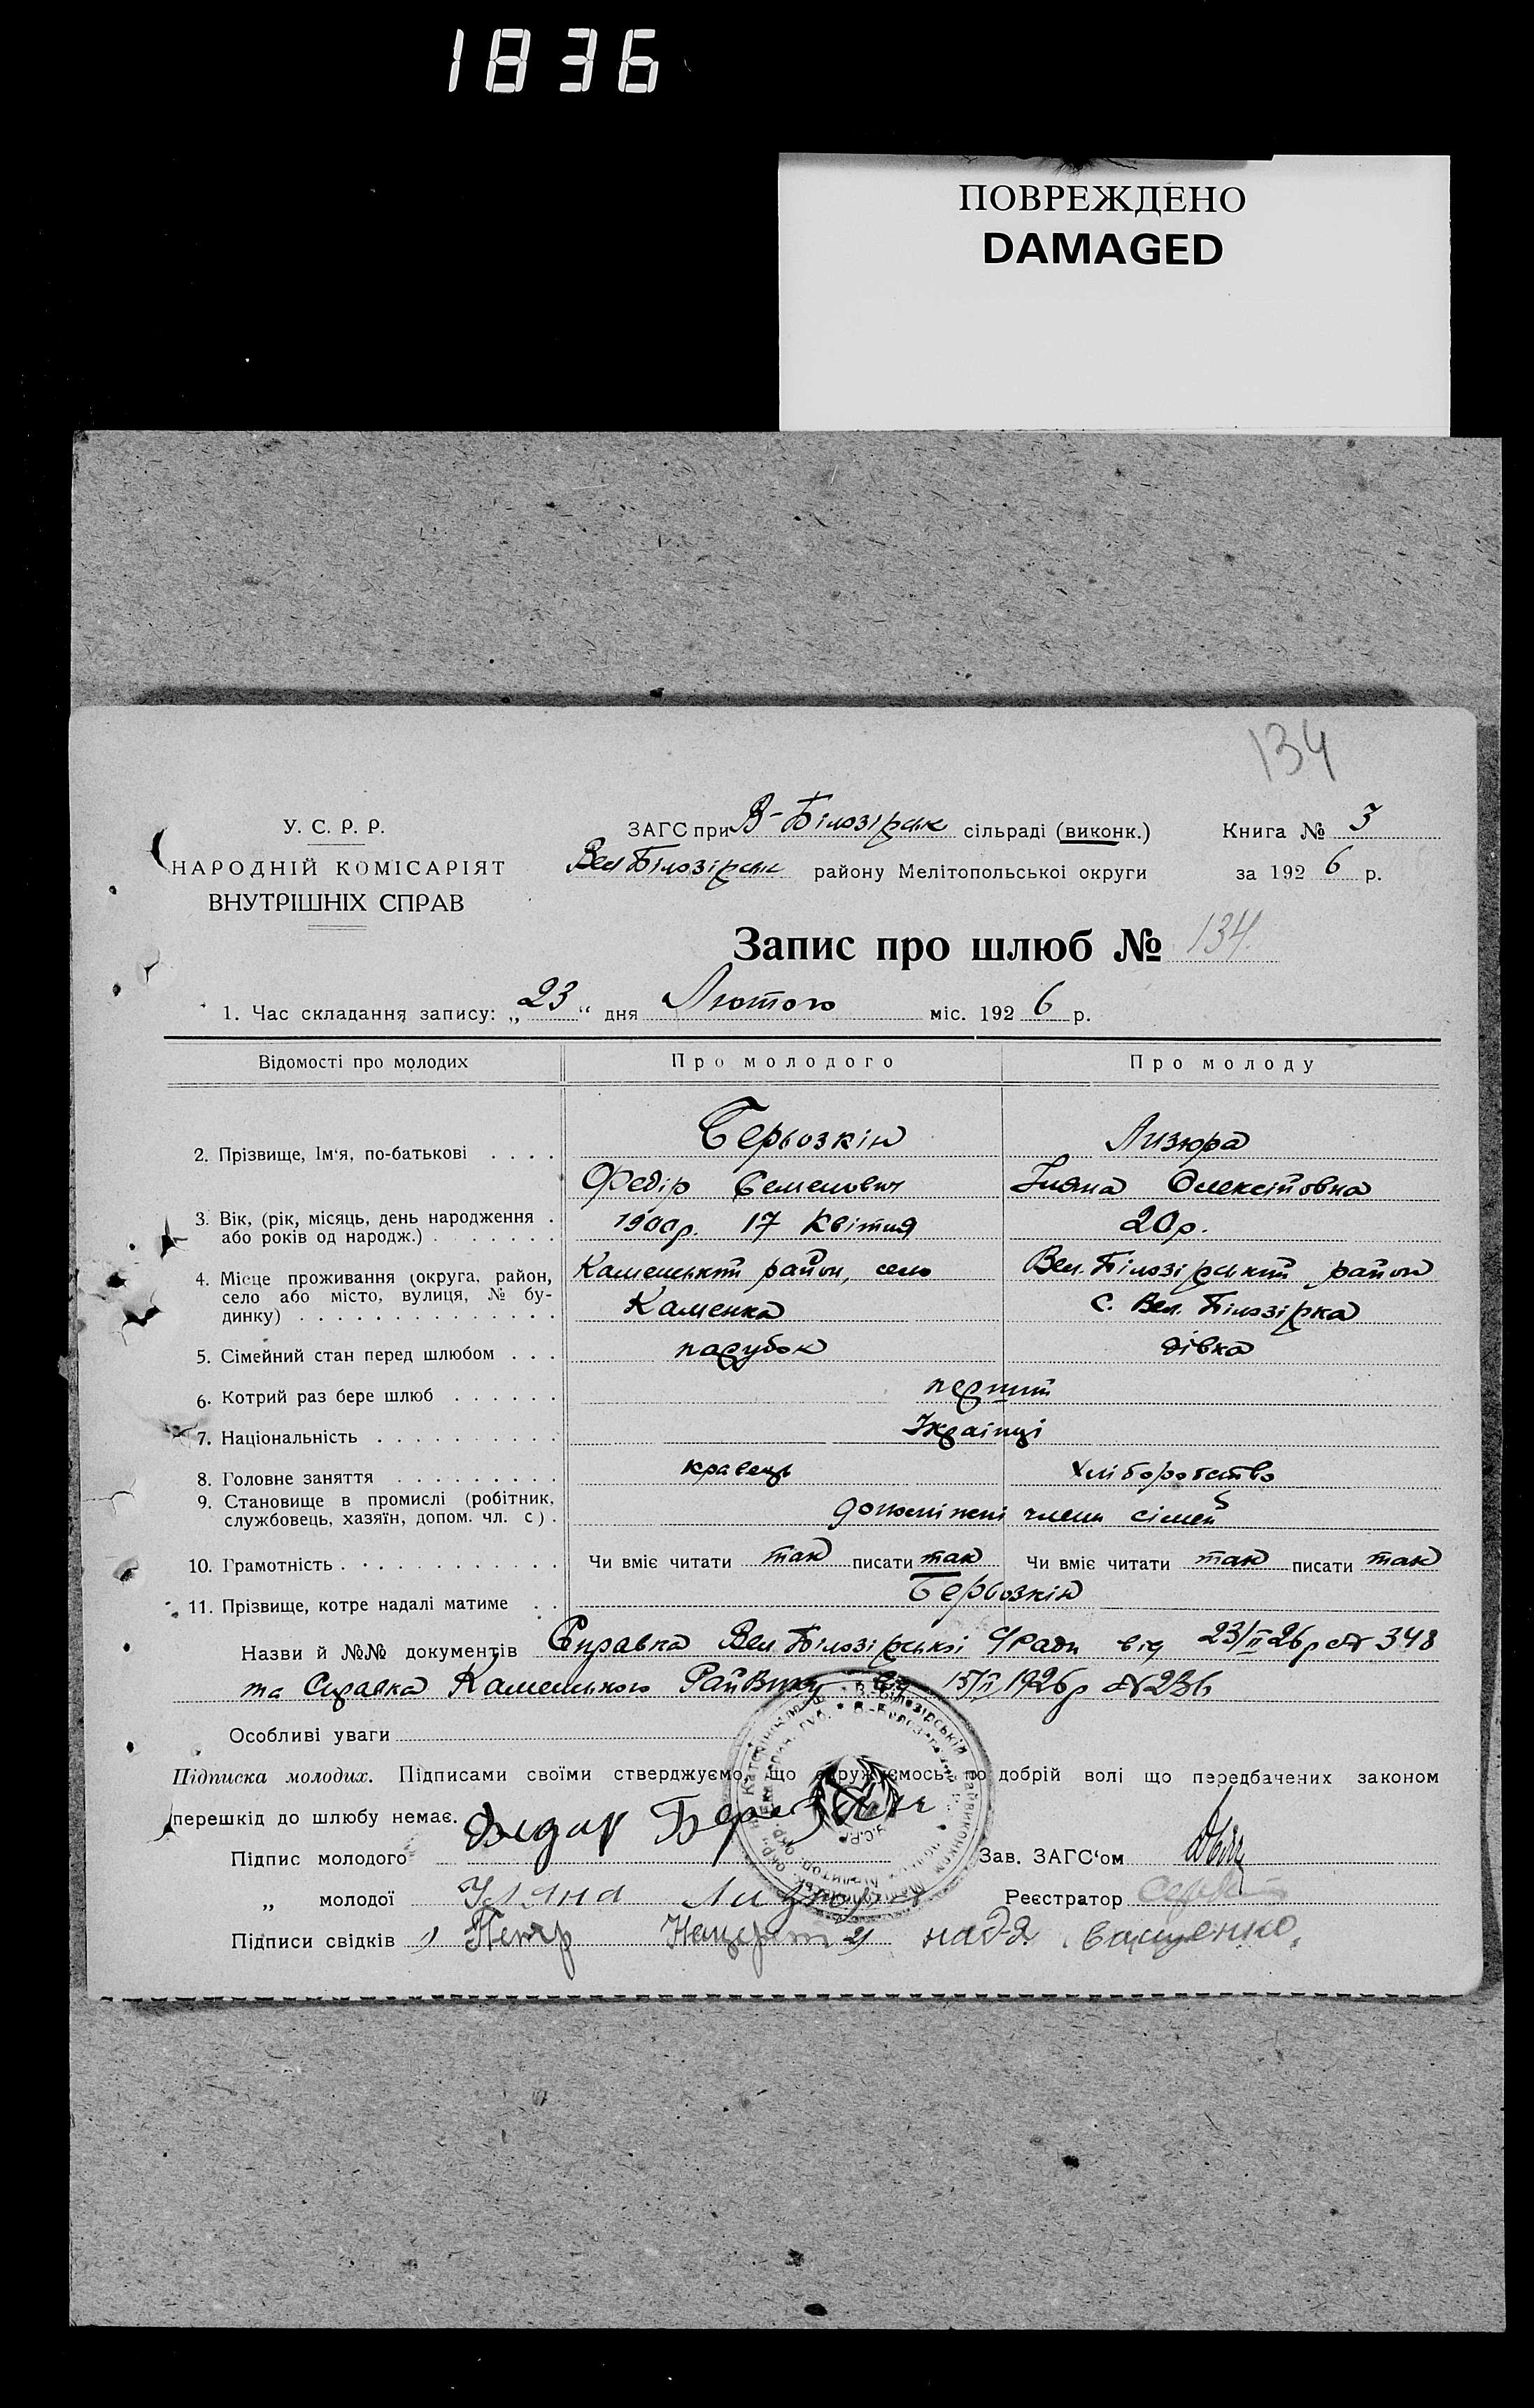 1836
ПОВРЕЖДЕНО
DAMAGED
134
У. С. Р. Р.
НАРОДНІЙ КОМІСАРІЯТ
ВНУТРІШНІХ СПРАВ
ЗАГС при В-Білозірськ сільраді (виконк.)
Вел Білозірськ району Мелітопольської округи
Книга № 3
за 1926 р.
Запис про шлюб № 134
1. Час складання запису: „23“ дня Лютого міс. 1926 р.
Відомості про молодих Про молодого Про молоду
2. Прізвище, Ім'я, по-батькові . . . . Берьозкін Лизюра
Федір Семенович Іляна Олексіївна
3. Вік, (рік, місяць, день народження . 1900р. 17 Квітня 20р.
або років од народж.) . . . . . .
4. Місце проживання (округа, район, Каменський район, село Вел. Білозірський район
село або місто, вулиця, № бу- Каменка с. Вел. Білозірка
динку) . . . . . . . . . . . . .
5. Сімейний стан перед шлюбом . . . парубок дівка
6. Котрий раз бере шлюб . . . . . . перший
7. Національність . . . . . . . . . . Українці
8. Головне заняття . . . . . . . . . кравець Хліборобство
9. Становище в промислі (робітник,
службовець, хазяїн, допом. чл. с) . члени сімей
10. Грамотність . . . . . . . . . . . Чи вміє читати так писати так Чи вміє читати так писати так
11. Прізвище, котре надалі матиме . . Берьозкін
Назви й №№ документів Справка Вел Білозірської С/Ради від 23/II 26р № 348
та Справка Каменського від 15/II 1926р №
Особливі уваги
Підписка молодих. Підписами своїми стверджуємо, що одружуємось по добрій волі що передбачених законом
перешкід до шлюбу немає.
Підпис молодого Зав. ЗАГС'ом
„ молодої Уляна Лизюра Реєстратор
Підписи свідків 1) Петр 2) надя ващенко.